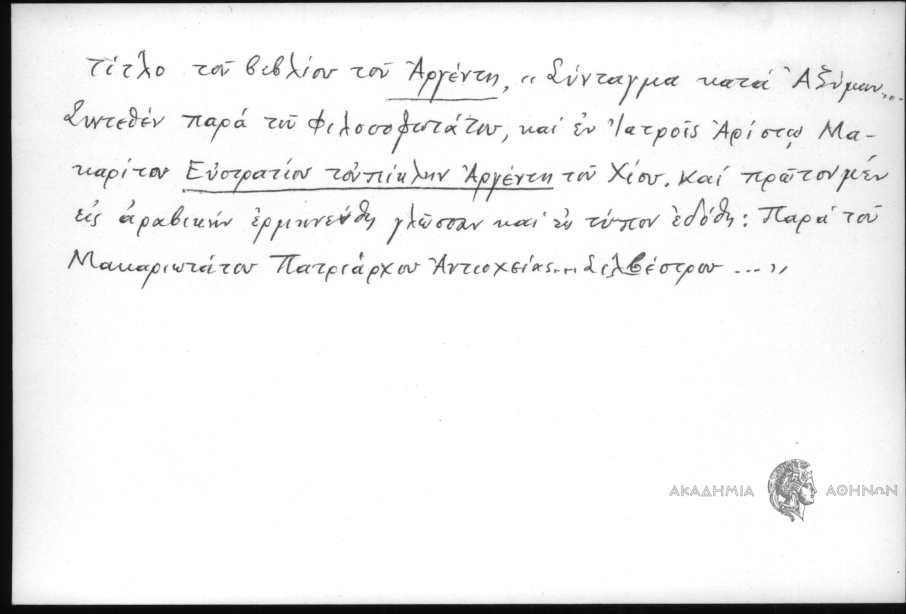 τίτλο τοῦ βιβλίου τοῦ Ἀργέντη, "Σύνταγμα κατά Ἀζύμων...
Συντεθέν παρά τοῦ Φιλοσοφωτάτου, καί ἐν Ἰατροῖς Ἀρίστῳ Μα-
καρίτου Εὐστρατίου τοὐπίκλην Ἀργέντη τοῦ Χίου. Καί πρῶτον μέν
εἰς ἀραβικήν ἑρμηνεύθη γλῶσσαν καί ἐν τύπον ἐδόθη: Παρά τοῦ
Μακαριωτάτου Πατριάρχου Ἀντιοχείας... Σιλβέστρου ..."
ΑΚΑΔΗΜΙΑ ΑΘΗΝΩΝ